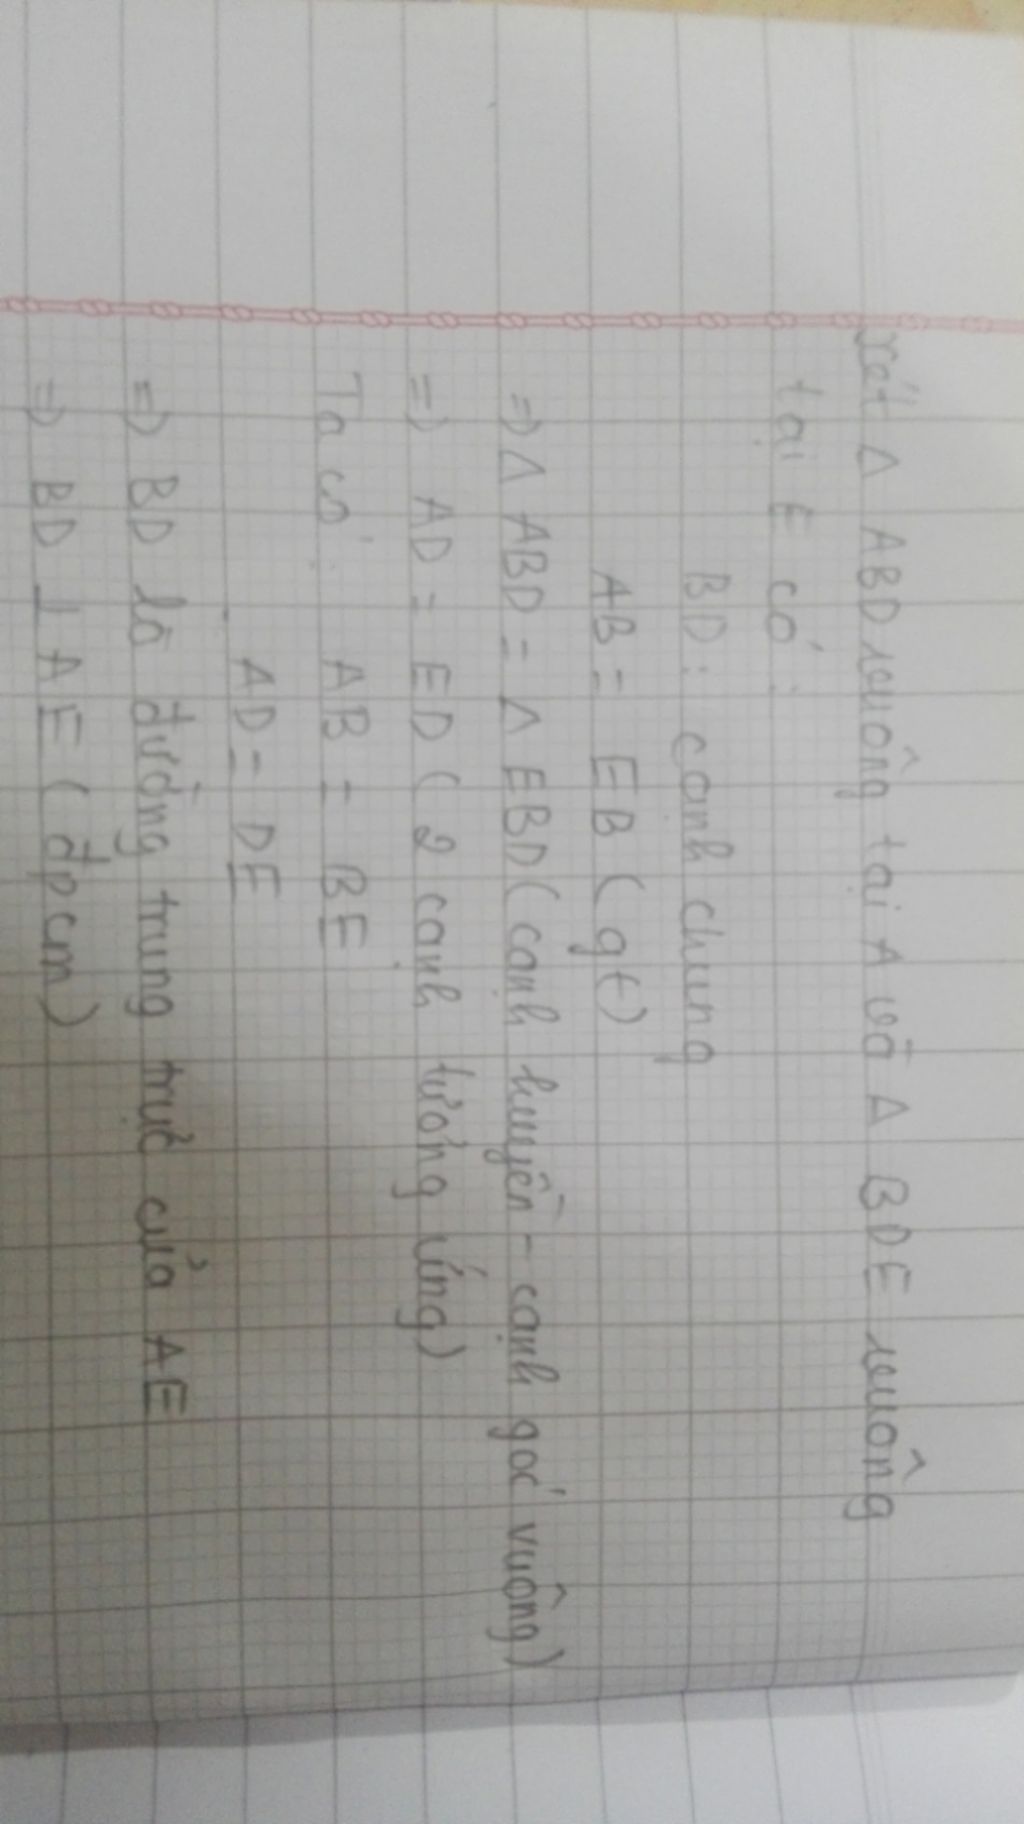 Xét Δ ABD vuông tại A và Δ BDE vuông
tại E có:
BD: cạnh chung
AB = EB (gt)
=) Δ ABD = Δ EBD (cạnh huyền - cạnh góc vuông)
=) AD = ED (2 cạnh tương ứng)
Ta có: AB = BE
AD = DE
=) BD là đường trung trực của AE
=) BD ⊥ AE (đpcm)